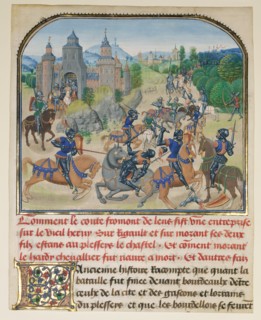 Comment le conte fromont de lens fist vne entreprise
sur le vieil herny sur rigault et sur morant ses deux
filz estans au plesseys le chastel Et coment morant
le hardy cheuallier fut naure a mort Et dautres fais
Ancienne histoire racompte que quant la
bataille fut finee deuant bourdeaulx dentre
ceulx de la cite et des gascons et lorrains
du plesseys et que les bourdellois se furent